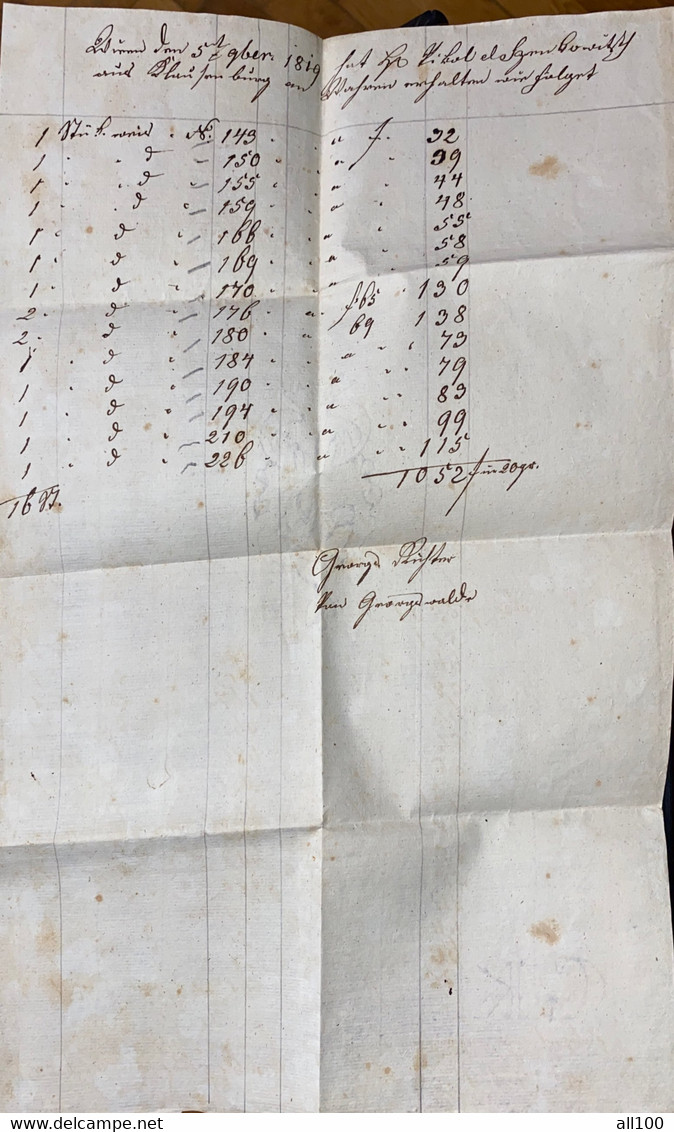 Wien den 5t 9ber: 1819 hat H
aus Klausenburg an Wahren erhalten wie folget
1 Stük weis N: 143 " f 32
1 " d " 150 " 39
1 " d " 155 " 44
1 " d " 159 " 48
1 " d " 166 " 55
1 " d " 169 " 58
1 " d " 170 " 59
2 " d " 176 " f 65 130
2 " d " 180 " 69 138
1 " d " 184 " 73
1 " d " 190 " 79
1 " d " 194 " 83
1 " d " 210 " 99
1 " d " 226 " 115
16 St. 1052 f in 20gr.
Georg Richter
Von Georgswalde
all100